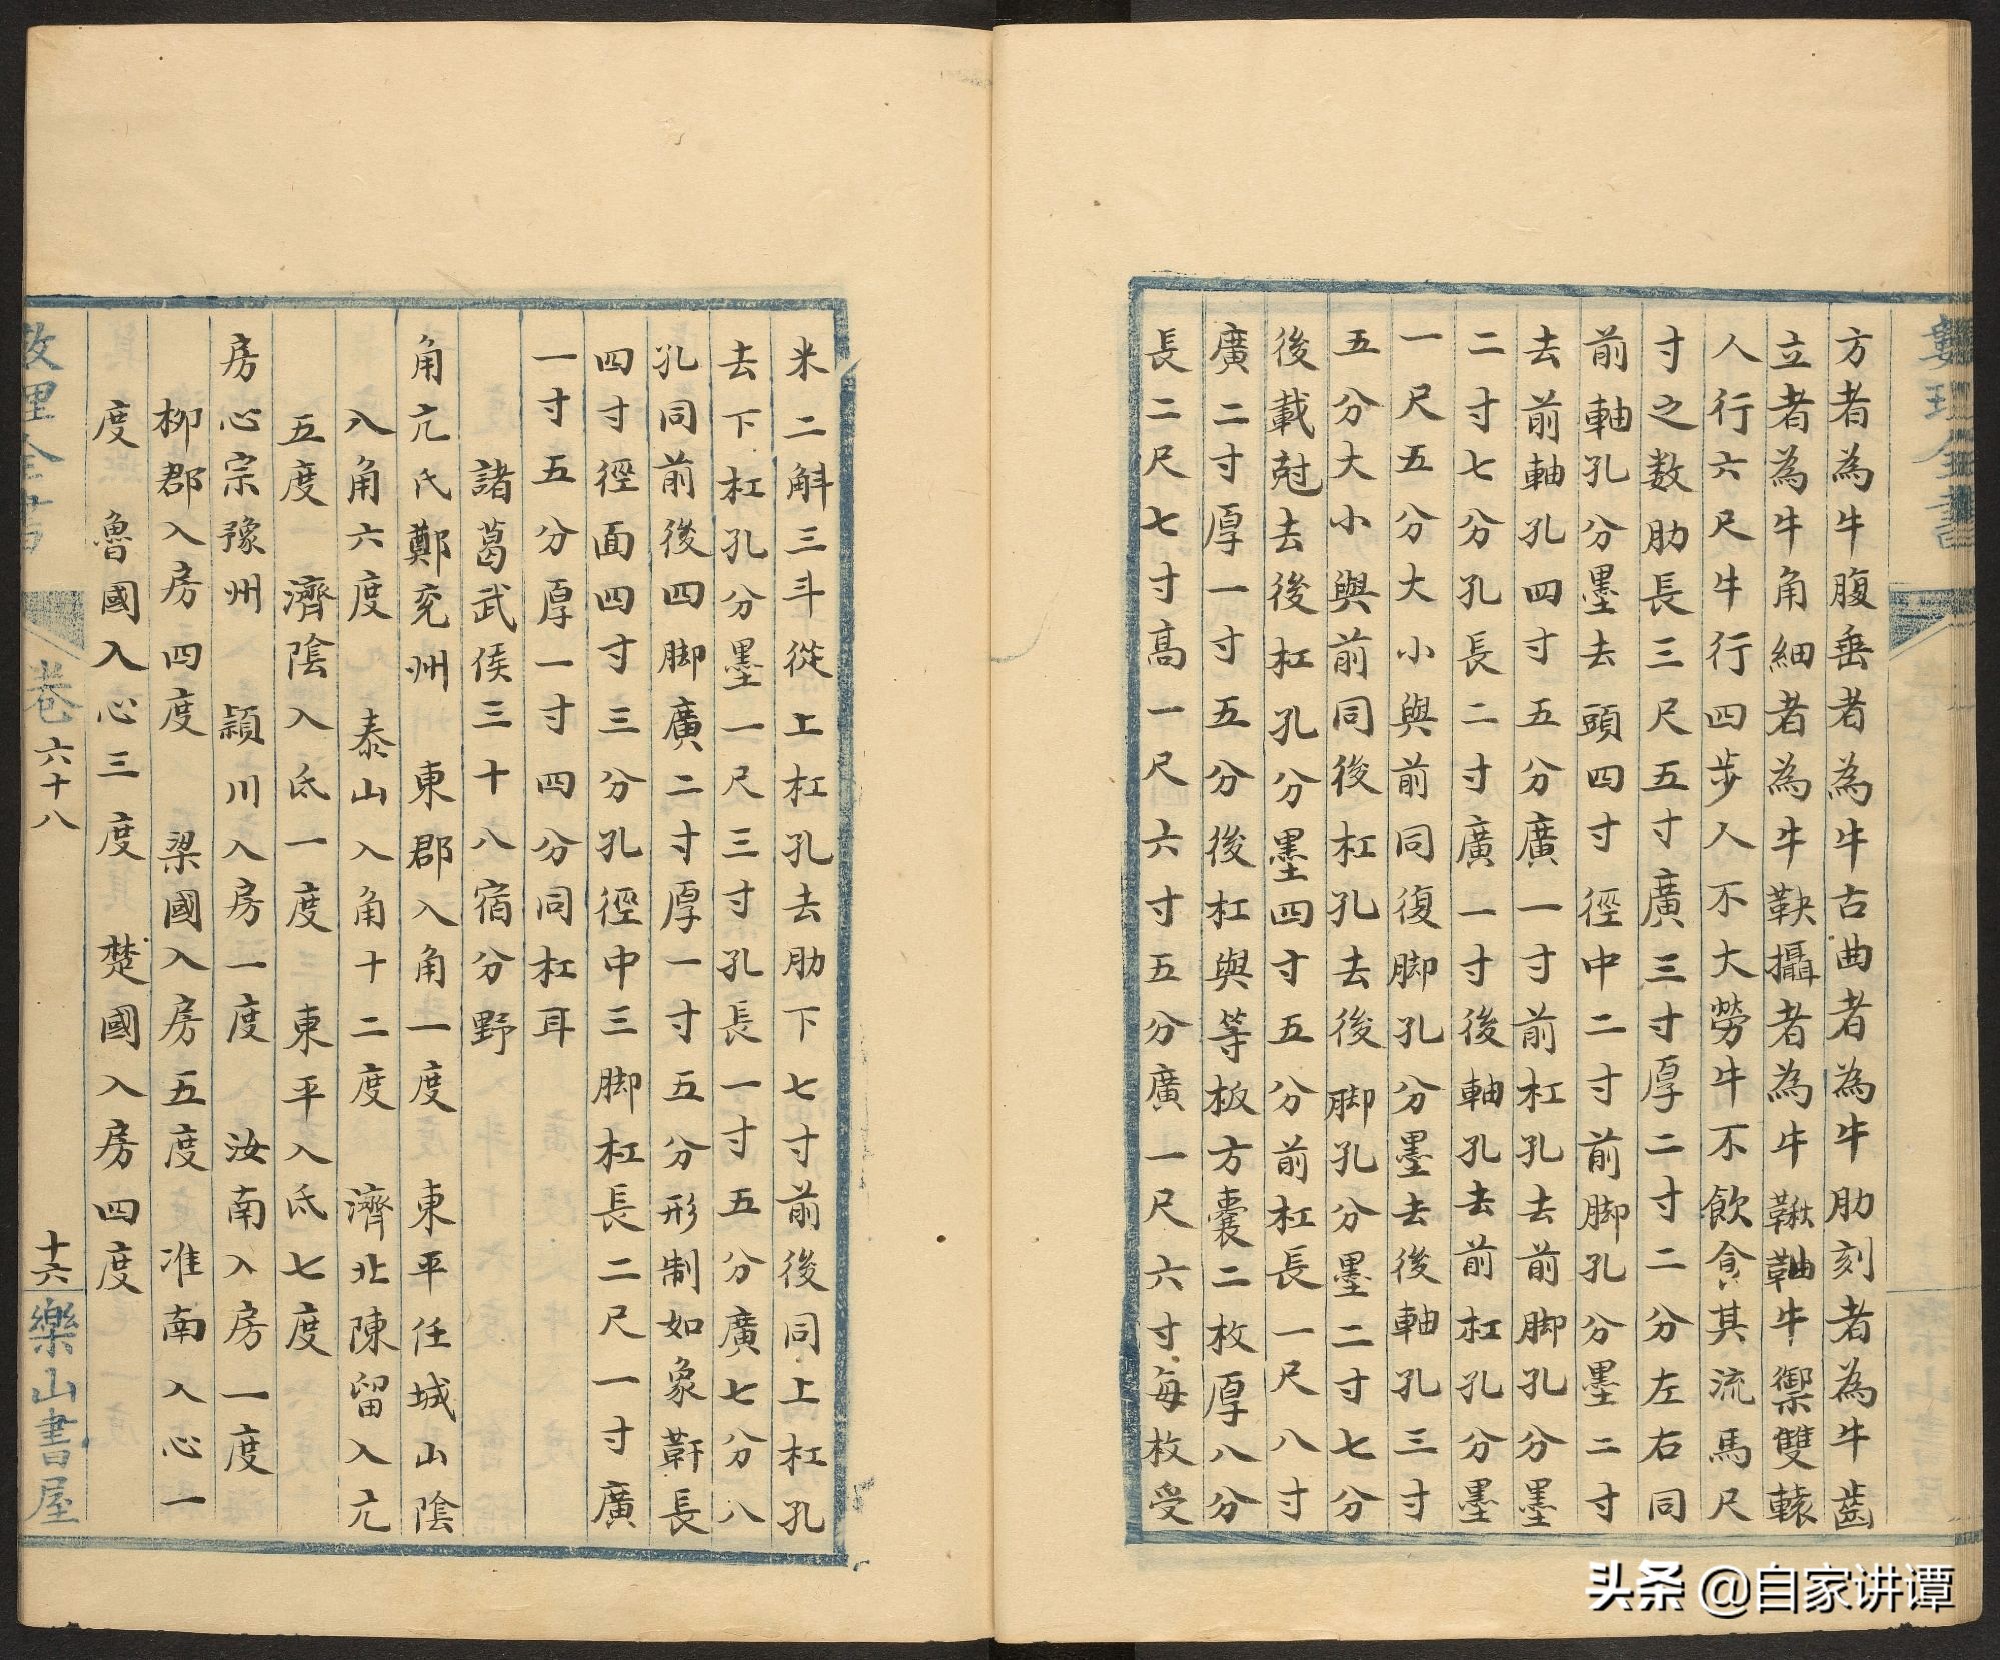 數理全書
方者為牛腹垂者為牛古曲者為牛肋刻者為牛齒
立者為牛角細者為牛鞅攝者為牛鞦䩜牛禦雙轅
人行六尺牛行四步人不大勞牛不飲食其流馬尺
寸之數肋長三尺五寸廣三寸厚二寸二分左右同
前軸孔分墨去頭四寸徑中二寸前脚孔分墨二寸
去前軸孔四寸五分廣一寸前杠孔去前脚孔分墨
二寸七分孔長二寸廣一寸後軸孔去前杠孔分墨
一尺五分大小與前同復脚孔分墨去後軸孔三寸
五分大小與前同後杠孔去後脚孔分墨二寸七分
後載尅去後杠孔分墨四寸五分前杠長一尺八寸
廣二寸厚一寸五分後杠與等板方囊二枚厚八分
長二尺七寸高一尺六寸五分廣一尺六寸每枚受
米二斛三斗從上杠孔去肋下七寸前後同上杠孔
去下杠孔分墨一尺三寸孔長一寸五分廣七分八
孔同前後四脚廣二寸厚一寸五分形制如象軒長
四寸徑面四寸三分孔徑中三脚杠長二尺一寸廣
一寸五分厚一寸四分同杠耳
諸葛武侯三十八宿分野
角亢氐鄭兗州 東郡入角一度 東平任城山陰
入角六度 泰山入角十二度 濟北陳留入亢
五度 濟陰入氐一度 東平入氐七度
房心宗豫州 潁川入房一度 汝南入房一度
柳郡入房四度 梁國入房五度 淮南入心一
度 魯國入心三度 楚國入房四度
數理全書 卷六十八 十六 樂山書屋
头条 @自家讲谭